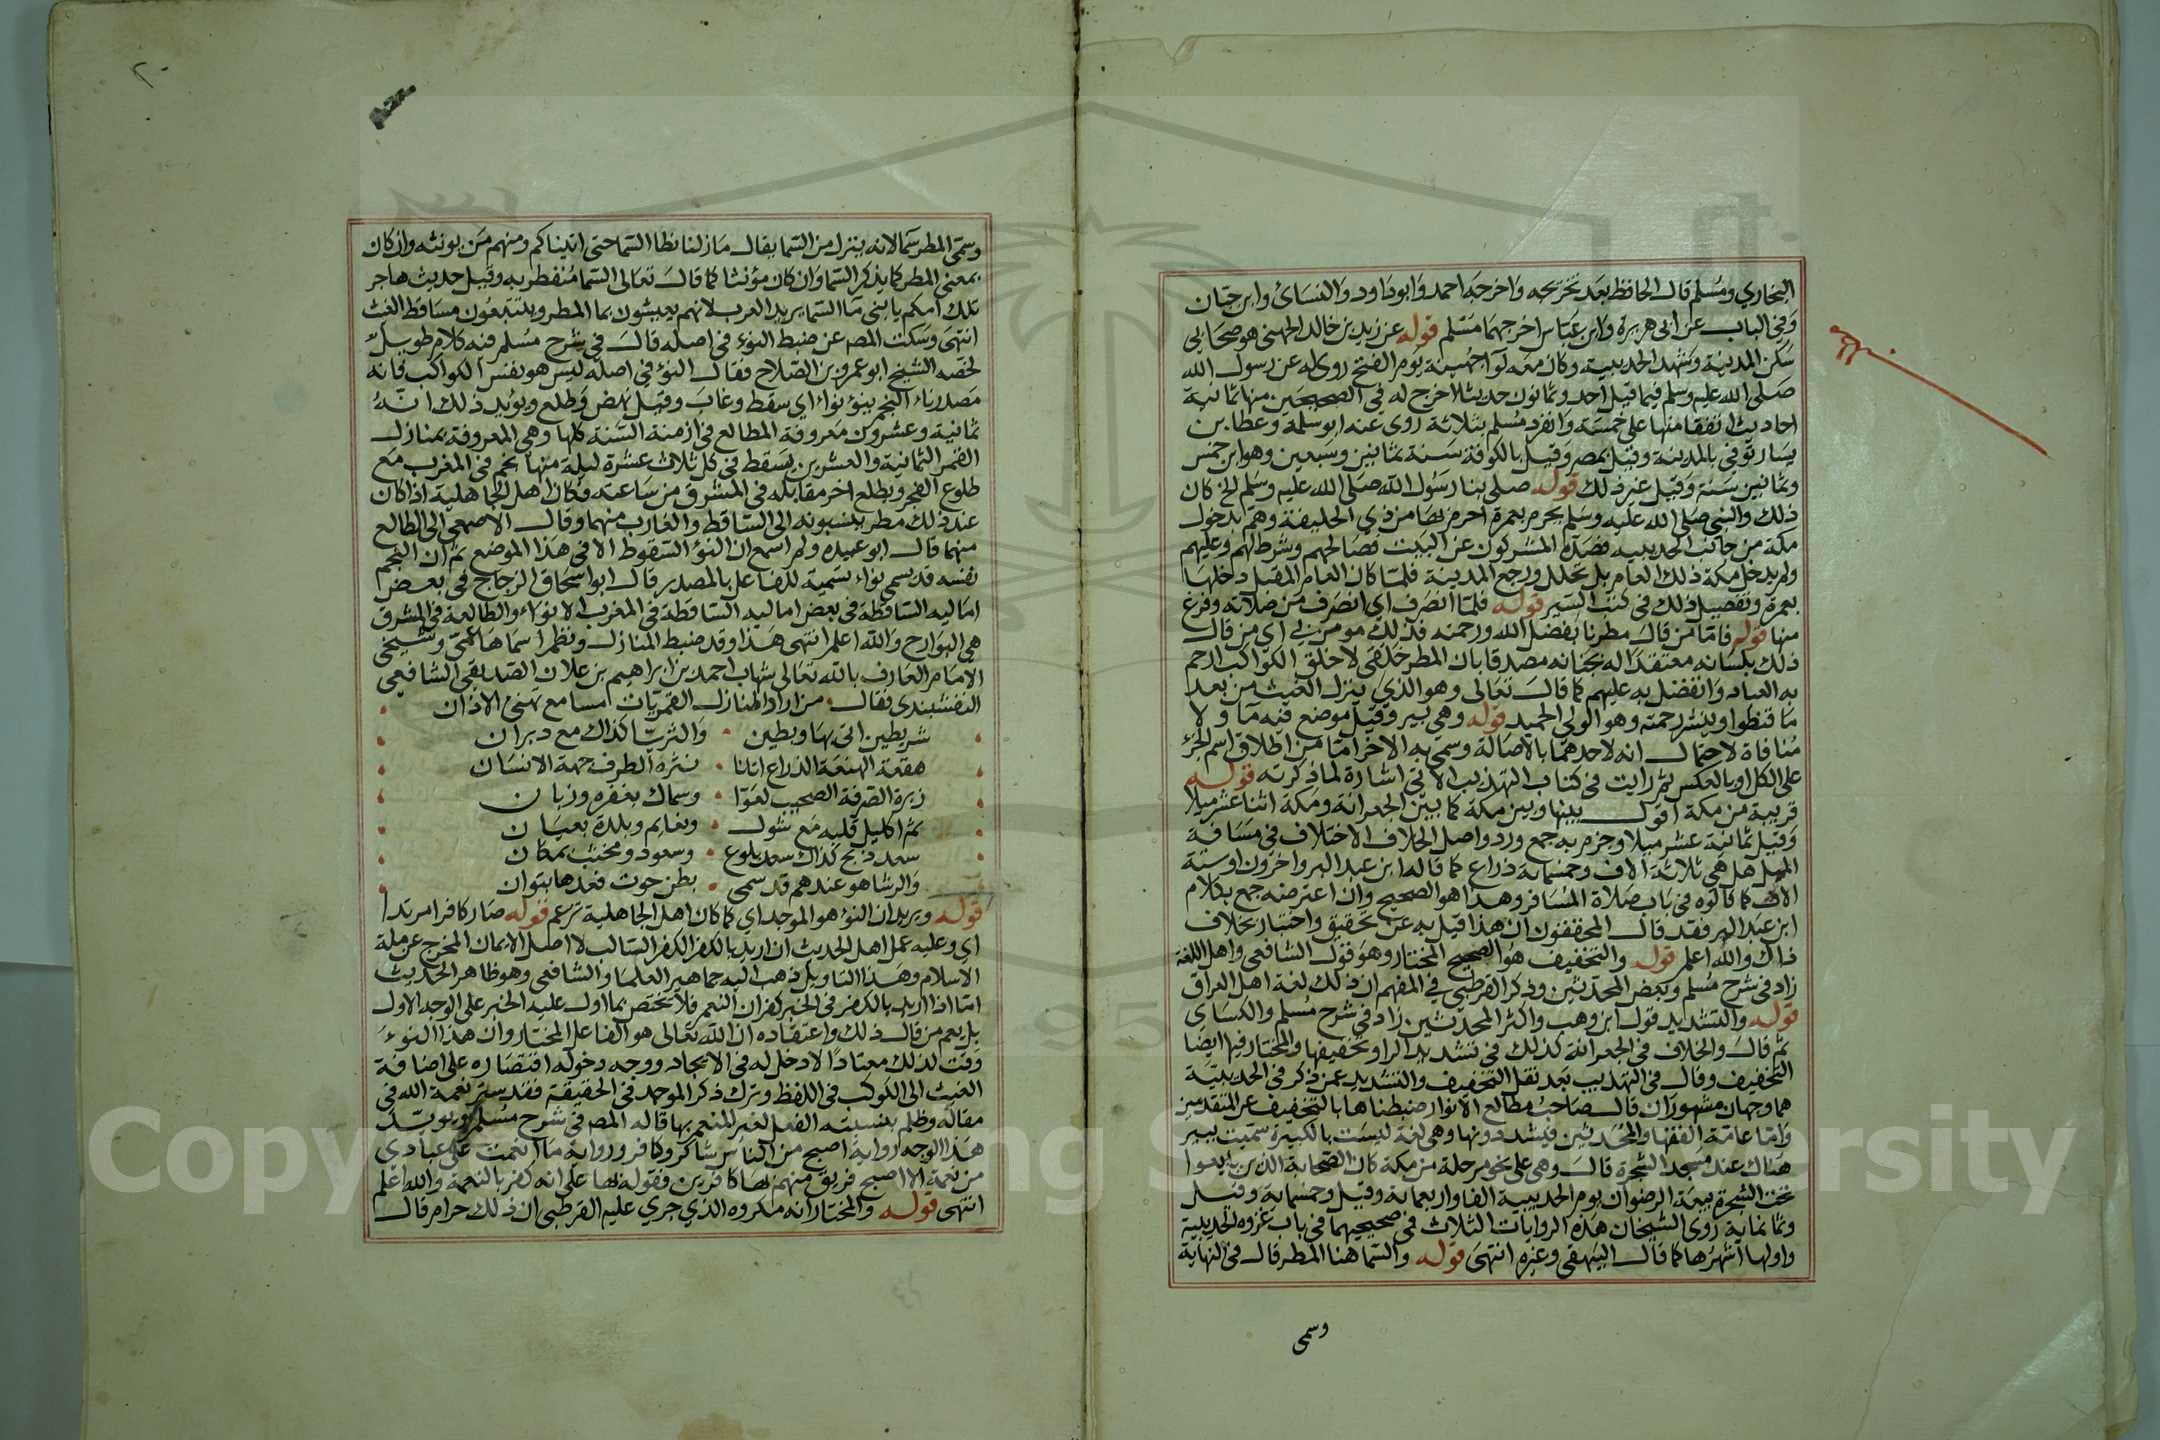 البخاري ومسلم قال الحافظ بعد تخريجه واخرجه احمد وابوداود والنسائ وابن حبان
وفي الباب عن ابى هريرة وابن عباس اخرجهما مسلم قوله عن زيد بن خالد الجهنى هو صحابي
سكن المدينة وشهد الحديبية وكان معه لوآ جهينة يوم الفتح روى له عن رسول الله
صلى الله عليه وسلم فيما قيل احد وثمانون حديثا اخرج له في الصحيحين منها ثمانية
احاديث اتفقا منها على خمسة وانفرد مسلم بثلاثة روى عنه ابو سلمة وعطا بن
يسار توفي بالمدينة وقيل بمصر وقيل بالكوفة سنة ثمانين وسبعين وهو ابن خمس
وثمانين سنة وقيل غير ذلك قوله صلى بنا رسول الله صلى الله عليه وسلم الخ كان
ذلك والنبي صلى الله عليه وسلم يحرم بعمرة احرم بها من ذي الحليفة وهم بدخول
مكة من جانب الحديبيه فصده المشركون عن البيت فصالحهم وشرط لهم وعليهم
ولم يدخل مكة ذلك العام بل تحلل ورجع المدينة فلما كان العام المقبل دخلها
بعمرة وتفصيل ذلك في كتب السير قوله فلما انصرف اي انصرف من صلاته وفرغ
منها قوله فاما من قال مطرنا بفضل الله ورحمته فذلك مومن بي اي من قال
ذلك بلسانه معتقدا له بجنانه مصدقا بان المطر خلقي لا خلق الكواكب ارحم
به العباد واتفضل به عليهم كما قال تعالى وهو الذي ينزل الغيث من بعد
ما قنطوا وينشر رحمته وهو الولي الحميد قوله وهي بير وقيل موضع فيه مآ ولا
منافاة لاحتمال انه لاحدهما بالاصالة وسمي به الاخر امتا من اطلاق اسم الجزء
على الكل او بالعكس ثم رايت في كتاب التهذيب الاتى اشارة لما ذكرته قوله
قريبة من مكة اقول بينها وبين مكة كما بين الجعرانة ومكة اثنا عشر ميلا
وقيل ثمانية عشر ميلا وجزم به جمع ورد واصل الخلاف الاختلاف في مسافة
الميل هل هي ثلاثة الاف وخمسمائة ذراع كما قاله ابن عبد البر واخرون او ستة
الاف كما قالوه في باب صلاة المسافر وهذا هو الصحيح وان اعترضه جمع بكلام
ابن عبد البر فقد قال المحققون ان هذا قيل به عن تحقيق واختبار بخلاف
ذاك والله اعلم قوله والتخفيف هو الصحيح المختار وهو قول الشافعي واهل اللغة
زاد في شرح مسلم وبعض المحدثين وذكر القرطبي في المفهم ان ذلك لغة اهل العراق
قوله والتشديد قول ابن وهب واكثر المحدثين زاد في شرح مسلم والكساي
ثم قال والخلاف في الجعرانة كذلك في تشديد الرا وتخفيفها والمختار فيها ايضا
التخفيف وقال في التهذيب بعد نقل التخفيف والتشديد عمن ذكر في الحديبية
هما وجهان مشهوران قال صاحب مطالع الانوار ضبطناها بالتخفيف عن المتقدمين
واما عامة الفقها والمحدثين فيشددونها وهي لغة ليست بالكبيرة سميت ببير
هناك عند مسجد الشجرة قال وهي على نحو مرحلة من مكة كان الصحابة الذين بايعوا
تحت الشجرة بيعة الرضوان يوم الحديبية الفا واربعماية وقيل وخمسماية وقيل
وثمانماية روى الشيخان هذه الروايات الثلاث في صحيحيهما في باب غزوه الحديبية
واولها اشهرها كما قال البيهقي وغيره انتهى قوله والسما هنا المطر قال في النهاية
وسمى
٢٠
وسمى المطر سمآ لانه ينزل من السما يقال ما زلنا نطا السما حتى اتيناكم ومنهم من يونثه وان كان
بمعنى المطر كما يذكر السما وان كان مؤنثا كما قال تعالى السما منفطر به وقيل حديث هاجر
تلك امكم يا بنى مآ السما يريد العرب لانهم يعيشون بما المطر ويتتبعون مساقط الغيث
انتهى وسكت المص عن ضبط النوء في اصله قال في شرح مسلم فيه كلام طويل
لخصه الشيخ ابو عمرو بن الصلاح فقال النوء في اصله ليس هو بنفس الكواكب فانه
مصدر ناء النجم ينوء نواء اي سقط وغاب وقيل نهض وطلع ويويد ذلك انه
ثمانية وعشرون معروفة المطالع في ازمنة السنة كلها وهي المعروفة بمنازل
القمر الثمانية والعشرين يسقط في كل ثلاث عشرة ليلة منها نجم في المغرب مع
طلوع الفجر ويطلع اخر مقابله في المشرق من ساعته فكان اهل الجاهلية اذا كان
عند ذلك مطر ينسبونه الى الساقط والغارب منهما وقال الاصمعي الى الطالع
منهما قال ابو عبيد ولم اسمع ان النوء السقوط الا في هذا الموضع ثم ان النجم
نفسه قد يسمى نواء تسمية للفاعل بالمصدر قال ابو اسحاق الزجاج في بعض
اماليه الساقطة في بعض اماليه الساقطة في المغرب الانواء والطالعة في المشرق
هي البوارح والله اعلم انتهى هذا وقد ضبط المنازل ونظم اسماها عمي وشيخي
الامام العارف بالله تعالى شهاب احمد بن ابراهيم بن علان الصديقي الشافعي
النقشبندى فقال من اراد المنازل القمريات امسا مع تهنئ الاذان
شريطين اتى بها وبطين والثريا كذاك مع دبران
هقعة الهنعة الذراع اتانا نثرة الطرف جبهة الانسان
زبرة الصرفة الصحيب لعوا وسماك بغفره وزبان
ثم اكليل قلبه مع شول ونعايم وبلدة بعيان
سعد ذبح كذاك سعد بلوع وسعود ومخبئ بمكان
والرشا هو عندهم قد سمى بطن حوت فعدها بتوان
قوله ويريد ان النوء هو الموجد اي كما كان اهل الجاهلية تزعم قوله صار كافرا مرتدا
اي وعليه عمل اهل الحديث ان اريد بالكفر الكفر السالب لا اصل الايمان المخرج عن ملة
الاسلام وهذا التاويل ذهب اليه جماهير العلما والشافعي وهو ظاهر الحديث
امتا اذا اريد بالكفر في الخبر كفران النعم فلا يختص بما اول عليه الخبر على الوجه الاول
بل يعم من قال ذلك واعتقاده ان الله تعالى هو الفاعل المختار وان هذا النوء
وقت لذلك معتادا لا دخل له في الايجاد ووجه دخوله اقتصاره على اضافة
الغيث الى الكوكب في اللفظ وترك ذكر الموجد في الحقيقة فقد ستر نعمة الله في
مقاله وظلم بنسبته الفعل لغير المنعم بها قاله المص في شرح مسلم ويويد
هذا الوجه رواية اصبح من الناس شاكر وكافر ورواية ما انعمت على عبادي
من نعمة الا اصبح فريق منهم بها كافرين فقوله بها على انه كفر بالنعمة والله اعلم
انتهى قوله والمختار انه مكروه الذي جري عليه القرطبي ان ذلك حرام قال
Copyright © King Saud University